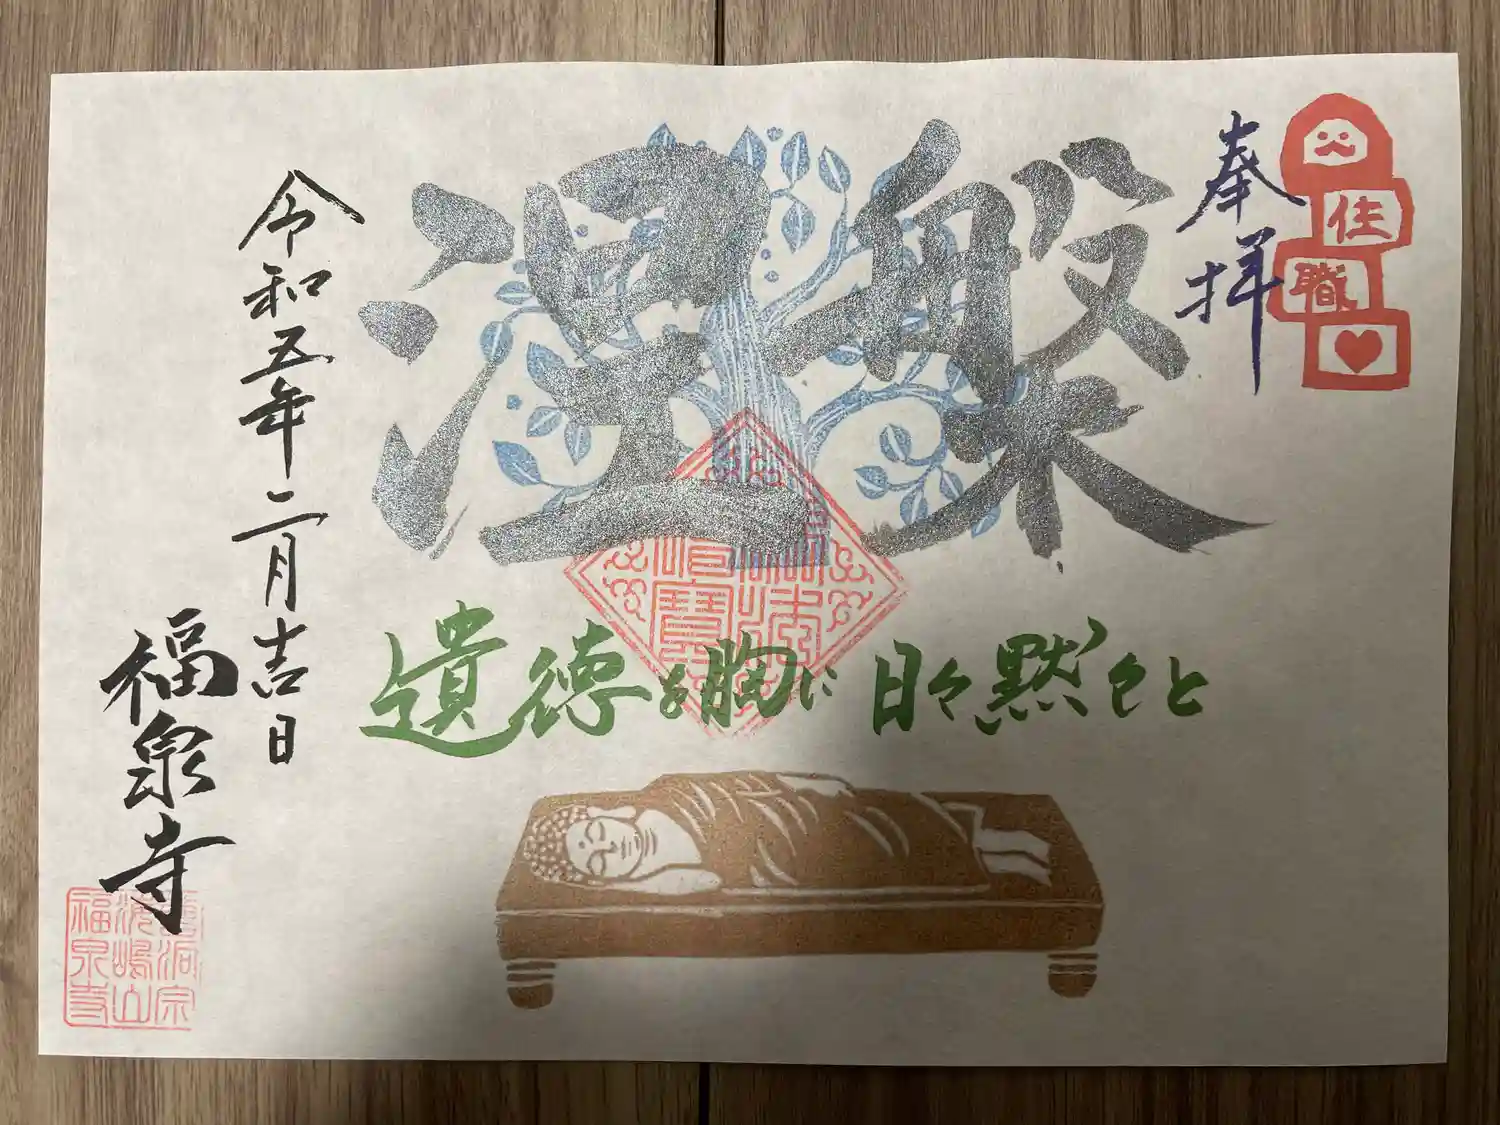 奉拝
住職
涅槃
遺徳を胸に 日々黙々と
令和五年二月吉日
福泉寺
曹洞宗
海嶋山
福泉寺